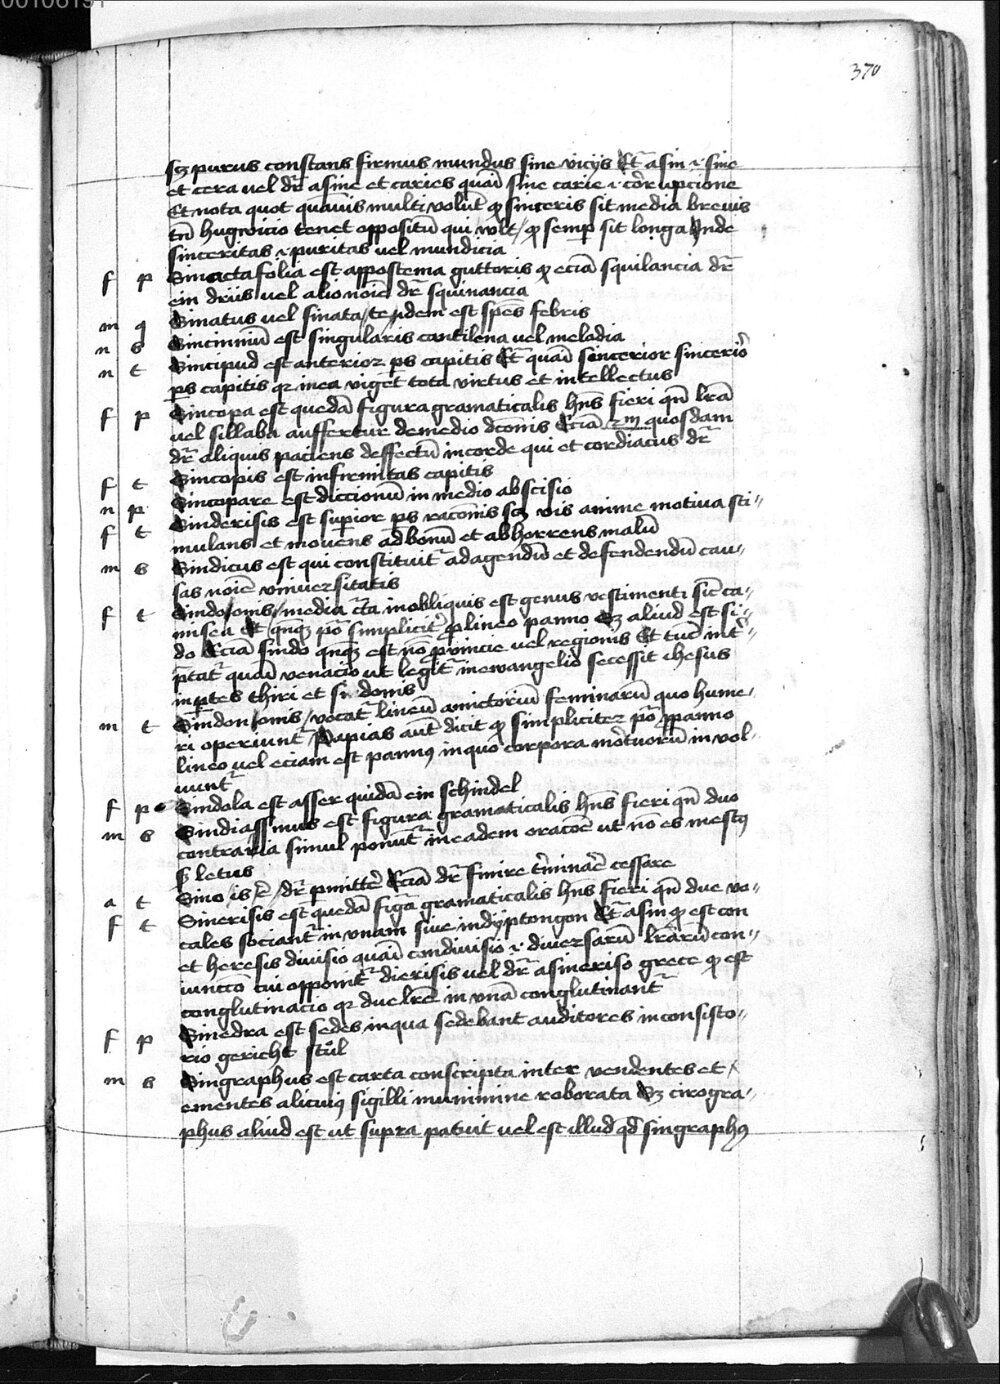 00108191
370
sz purus constans firmus mundus sine vicijs Et a sin i sine
et cera vel dr a sine et caries quasi sine carie i corrupcione
Et nota quot quamvis multi volut qz sinceris sit media brevis
tn hugwicio tenet oppositu qui vult / qz semp sit longa Inde
sinceritas i puritas vel mundicia
f p Sinactafolia est appostema gutturis qz ecia squilancia dr
ein vel alio noie dr squinancia
m q Sinatus vel sinata / te / idem est spes febris
n s Sincinniu est singularis cantilena vel melodia
n t Sincipud est anterior ps capitis Et quasi sincerior
ps capitis qz in ea viget tota virtus et intellectus
f p Sincopa est queda figura gramaticalis hns fieri qn lra
vel sillaba auffertur de medio dconis Ecia quosdam
dr aliquis paciens deffectu in corde qui et cordiacus dr
f t Sincopis est infirmitas capitis
n p Sincopare est diccionu in medio abscisio
f t Sinderisis est superior ps raconis sz vis anime motiva sti=
mulans et movens ad bonu et abhorrens malu
m s Sindicus est qui constituit ad agendu et defendendu cau=
sas noie universitatis
f t Sindo / onis / media cta in obliquis est genus vestimenti sic ca=
misea Et qnqz po simplicit p lineo panno Sz aliud est si=
do Ecia sindo qnqz est no provincie vel regionis Et tuc int=
ptat quasi venacio ut legit in ewangelio secessit ihesus
in ptes thiri et sindonis
m t Sindon / onis / vocat lineu amictoriu feminaru quo hume=
ri operiunt Papias aut dicit qz simpliciter po p panno
lineo vel eciam est pannus in quo corpora mortuoru invol=
vunt
f p Sindola est asser quida ein schindel
m s Sindiassmus est figura gramaticalis hns fieri qn duo
contraria simul ponut in eadem oracoe ut no es mestus
s letus
a t Sino / is e / dr pmitte Ecia dr finire tminare cessare
f t Sinerisis est quedam figa gramaticalis hns fieri qn due vo=
cales sociant in unam sive in dyptongon Et a sin qz est con
et heresis divisio quasi condivisio i diversaru lraru con=
iuncco cui opponit dierisis vel dr a sineriso grece qz est
conglutinacio qz due lre in una conglutinant
f p Sinedra est sedes in qua sedebant auditores in consisto=
rio gericht stul
m s Singraphus est carta conscripta inter vendentes et
ementes alicuius sigilli munimine roborata Sz cirogra=
phus aliud est ut supra patuit vel est illud qd singraphus